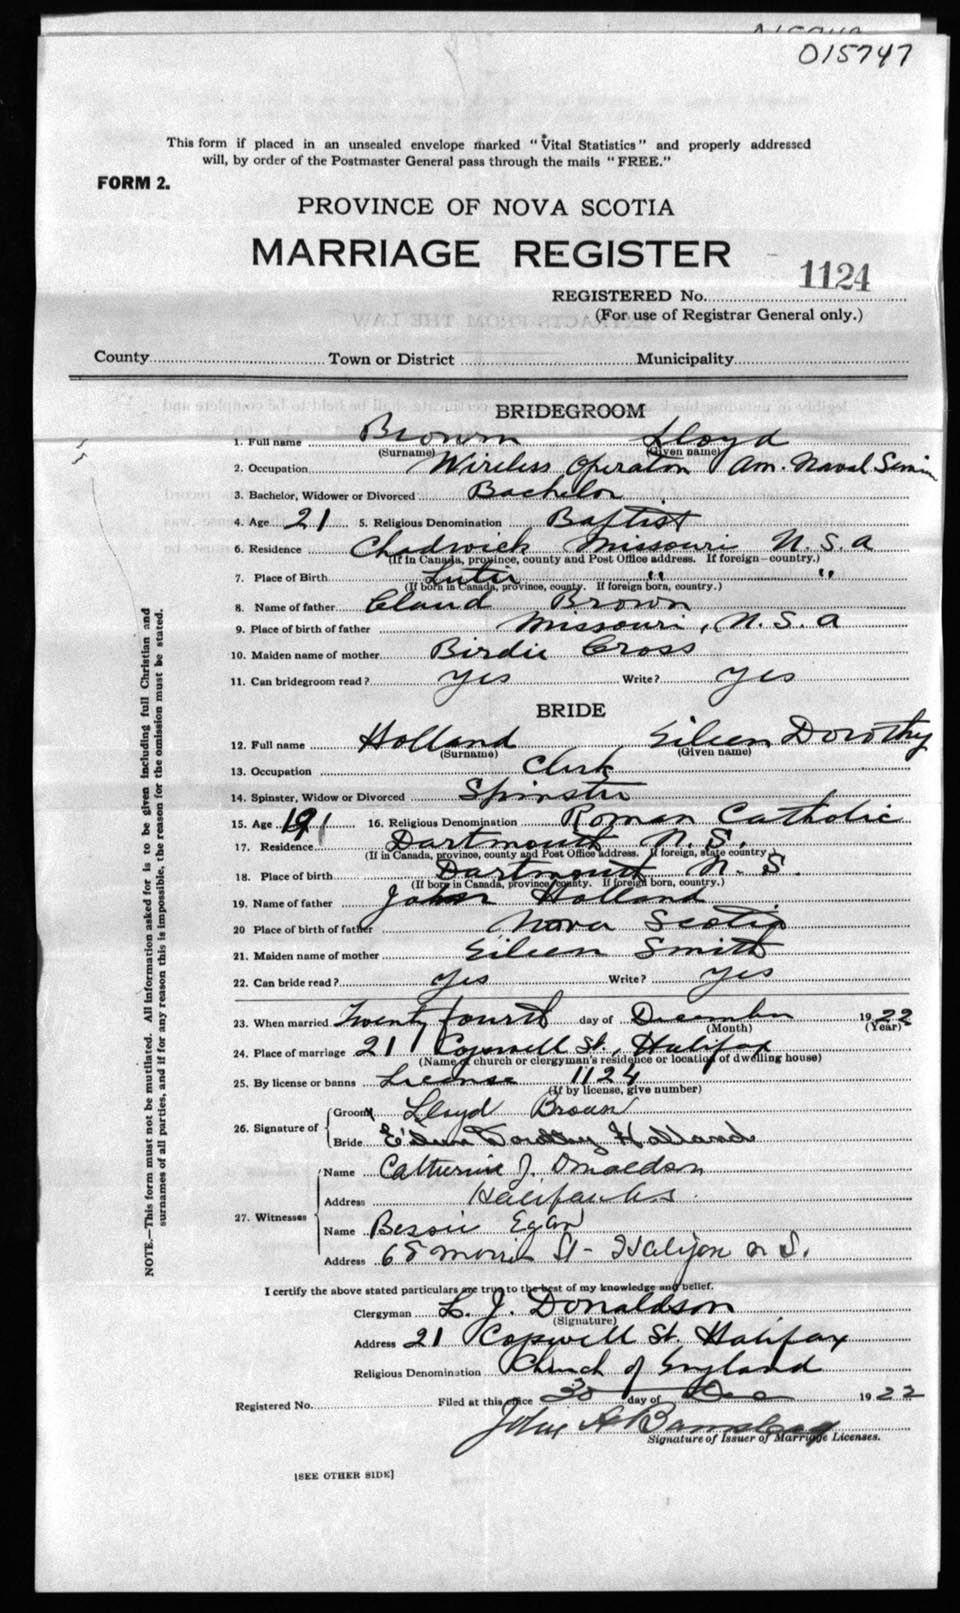 015747
This form if placed in an unsealed envelope marked "Vital Statistics" and properly addressed
will, by order of the Postmaster General pass through the mails "FREE."
FORM 2.
PROVINCE OF NOVA SCOTIA
MARRIAGE REGISTER
1124
REGISTERED No.
(For use of Registrar General only.)
County Town or District Municipality
BRIDEGROOM
1. Full name Brown Lloyd
(Surname) (Given name)
2. Occupation Wireless Operator Am. Naval
3. Bachelor, Widower or Divorced Bachelor
4. Age 21 5. Religious Denomination Baptist
6. Residence Chadwick Missouri U.S.A
(If in Canada, province, county and Post Office address. If foreign—country.)
7. Place of Birth " "
(If born in Canada, province, county. If foreign born, country.)
8. Name of father Claud Brown
9. Place of birth of father Missouri, U.S.A
10. Maiden name of mother Birdie Cross
11. Can bridegroom read? Yes Write? Yes
BRIDE
12. Full name Holland Eileen Dorothy
(Surname) (Given name)
13. Occupation Clerk
14. Spinster, Widow or Divorced Spinster
15. Age 16. Religious Denomination Roman Catholic
17. Residence Dartmouth N.S.
(If in Canada, province, county and Post Office address. If foreign, state country.)
18. Place of birth Dartmouth N.S.
(If born in Canada, province, county. If foreign born, country.)
19. Name of father John Holland
20 Place of birth of father Nova Scotia
21. Maiden name of mother Eileen Smith
22. Can bride read? Yes Write? Yes
23. When married Twenty fourth day of December 1922
(Month) (Year)
24. Place of marriage 21 Copswell St., Halifax
(Name of church or clergyman's residence or location of dwelling house)
25. By license or banns License 1124
(If by license, give number)
26. Signature of Groom Lloyd Brown
Bride Eileen Dorothy Holland
27. Witnesses Name Catherine J. Donaldson
Address Halifax N.S.
Name Bessie Egan
Address 68 Morris St - Halifax N.S.
I certify the above stated particulars are true to the best of my knowledge and belief.
Clergyman L. J. Donaldson
(Signature)
Address 21 Copswell St. Halifax
Religious Denomination Church of England
Registered No. Filed at this office 30 day of Dec 1922
John A
Signature of Issuer of Marriage Licenses.
[SEE OTHER SIDE]
NOTE.—This form must not be mutilated. All information asked for is to be given including full Christian and
surnames of all parties, and if for any reason this is impossible, the reason for the omission must be stated.